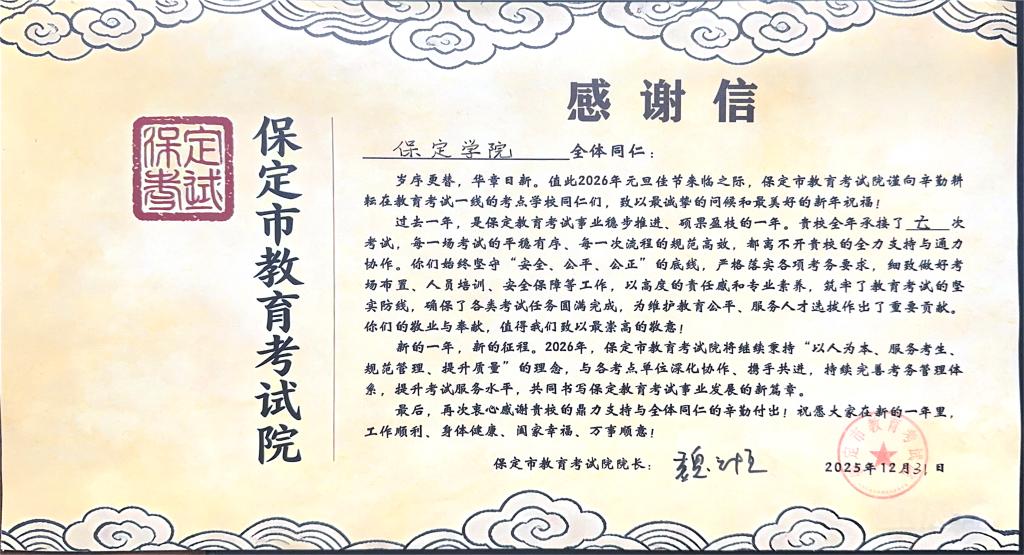 感谢信
保定考试
保定市教育考试院
保定学院 全体同仁：
岁序更替，华章日新。值此2026年元旦佳节来临之际，保定市教育考试院谨向辛勤耕
耘在教育考试一线的考点学校同仁们，致以最诚挚的问候和最美好的新年祝福！
过去一年，是保定教育考试事业稳步推进、硕果盈枝的一年。贵校全年承接了 六 次
考试，每一场考试的平稳有序、每一次流程的规范高效，都离不开贵校的全力支持与通力
协作。你们始终坚守“安全、公平、公正”的底线，严格落实各项考务要求，细致做好考
场布置、人员培训、安全保障等工作，以高度的责任感和专业素养，筑牢了教育考试的坚
实防线，确保了各类考试任务圆满完成，为维护教育公平、服务人才选拔作出了重要贡献。
你们的敬业与奉献，值得我们致以最崇高的敬意！
新的一年，新的征程。2026年，保定市教育考试院将继续秉持“以人为本、服务考生、
规范管理、提升质量”的理念，与各考点单位深化协作、携手共进，持续完善考务管理体
系，提升考试服务水平，共同书写保定教育考试事业发展的新篇章。
最后，再次衷心感谢贵校的鼎力支持与全体同仁的辛勤付出！祝愿大家在新的一年里，
工作顺利、身体健康、阖家幸福、万事顺意！
保定市教育考试院院长：
2025年12月31日